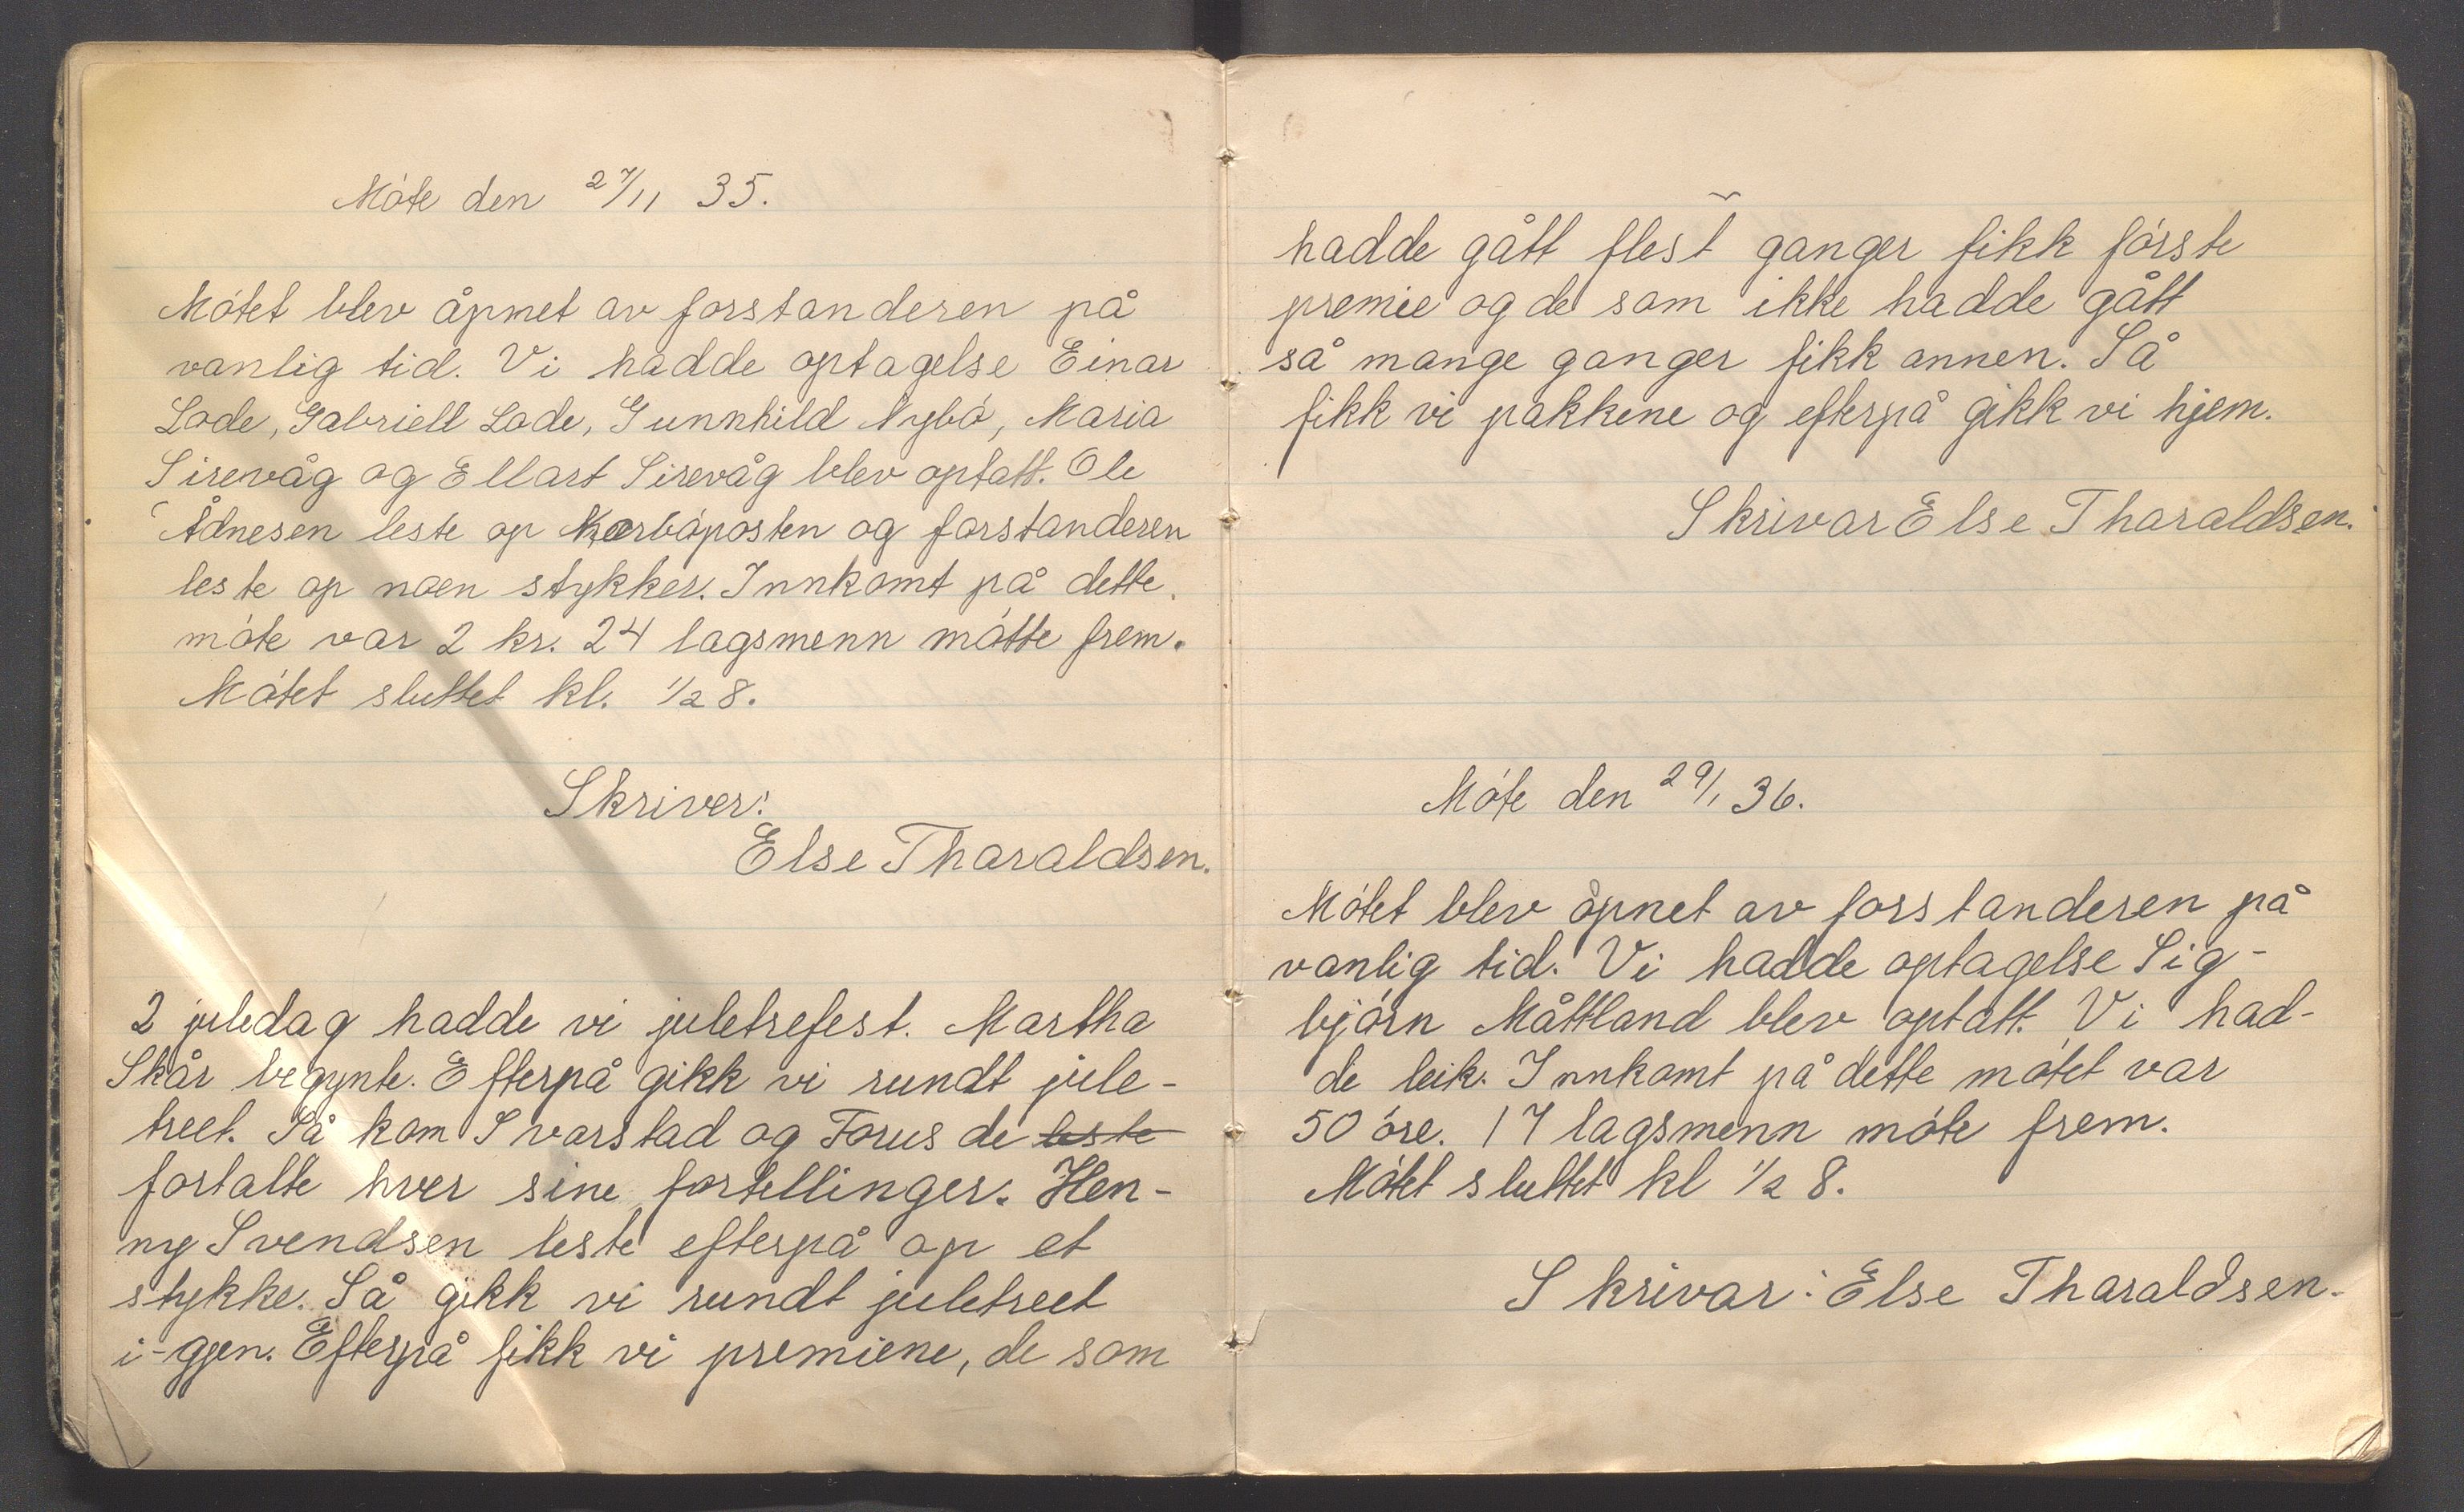 Móte den 27/11 35.
Mótet blev åpnet av forstanderen på
vanlig tid. Vi hadde optagelse Einar
Lode, Gabriell Lode, Gunnhild Nybó, Maria
Sirevåg og Ellart Sirevåg blev optatt. Ole
Ådnesen leste op Karbóposten og forstanderen
leste op noen stykker. Innkomt på dette
móte var 2 kr. 24 lagsmenn mótte frem.
Mótet sluttet kl. 1/2 8.
Skriver:
Else Tharaldsen.
2 juledag hadde vi juletrefest. Martha
Skår begynte. Efterpå gikk vi rundt jule-
treet. Så kom Svarstad og Forus de leste
fortalte hver sine fortellinger. Hen-
ny Svendsen leste efterpå op et
stykke. Så gikk vi rundt juletreet
i-gjen. Efterpå fikk vi premiene, de som
hadde gått flest ganger fikk fórste
premie og de som ikke hadde gått
så mange ganger fikk annen. Så
fikk vi pakkene og efterpå gikk vi hjem.
Skrivar Else Tharaldsen.
Móte den 29/1 36.
Mótet blev åpnet av forstanderen på
vanlig tid. Vi hadde optagelse Sig-
bjórn Måttland blev optatt. Vi had-
de leik. Innkomt på dette mótet var
50 óre. 17 lagsmenn móte frem.
Mótet sluttet kl 1/2 8.
Skrivar: Else Tharaldsen.